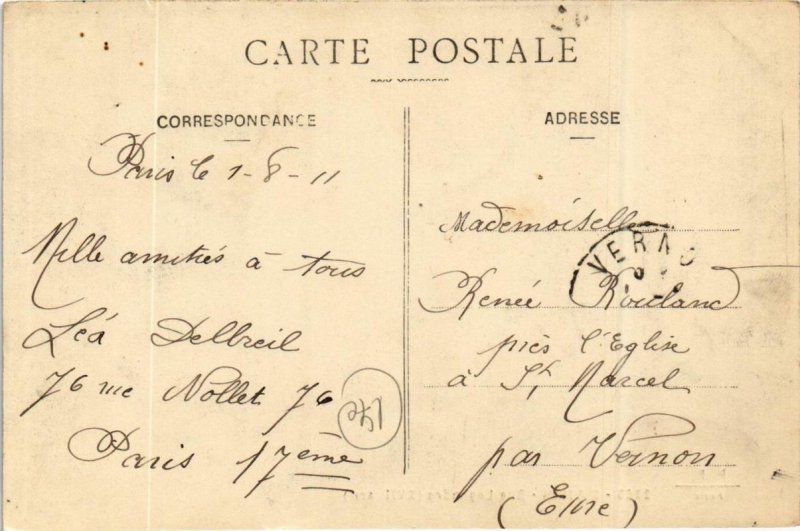 CARTE POSTALE
CORRESPONDANCE
Paris le 1-8-11
Mille amitiés à tous
Léa Delbreil
76 rue Nollet 76
Paris 17ème
17e
ADRESSE
Mademoiselle
Renée Rouland
près l'Eglise
à St Marcel
par Vernon
(Eure)
VERNO